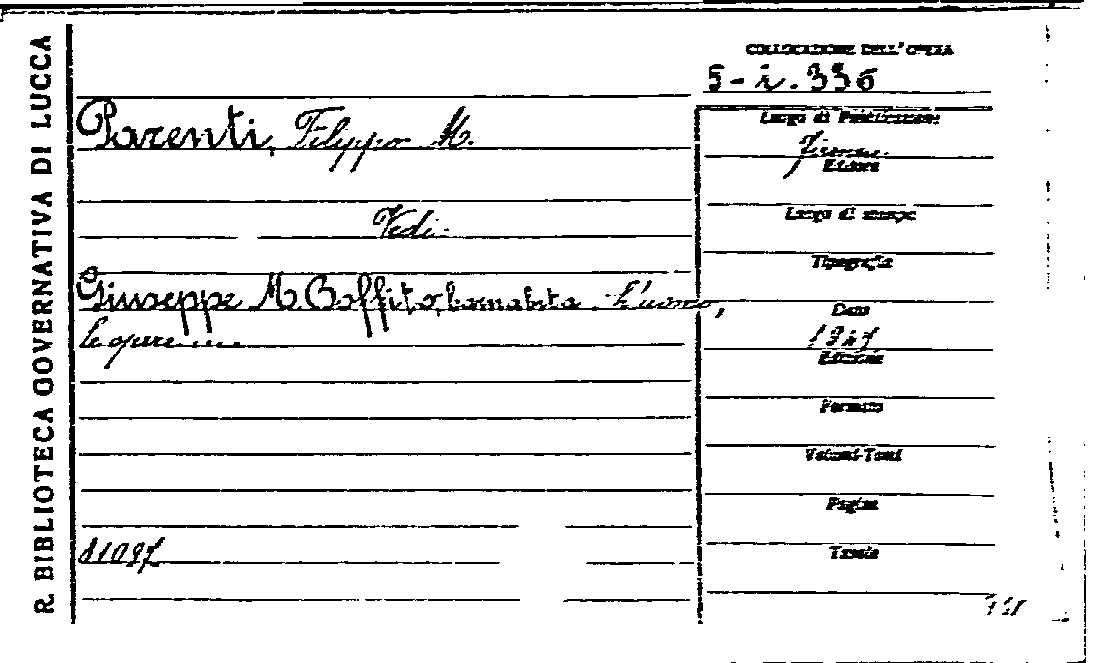 R. BIBLIOTECA GOVERNATIVA DI LUCCA
COLLOCAZIONE DELL'OPERA
5-i.336
Parenti, Filippo M.
Vedi
Giuseppe M. Boffito, barnabita. L'uomo,
le opere....
81097
Luogo di Pubblicazione
Firenze
Editore
Luogo di stampa
Tipografia
Data
1941
Edizione
Formato
Volumi-Tomi
Pagine
Tavole